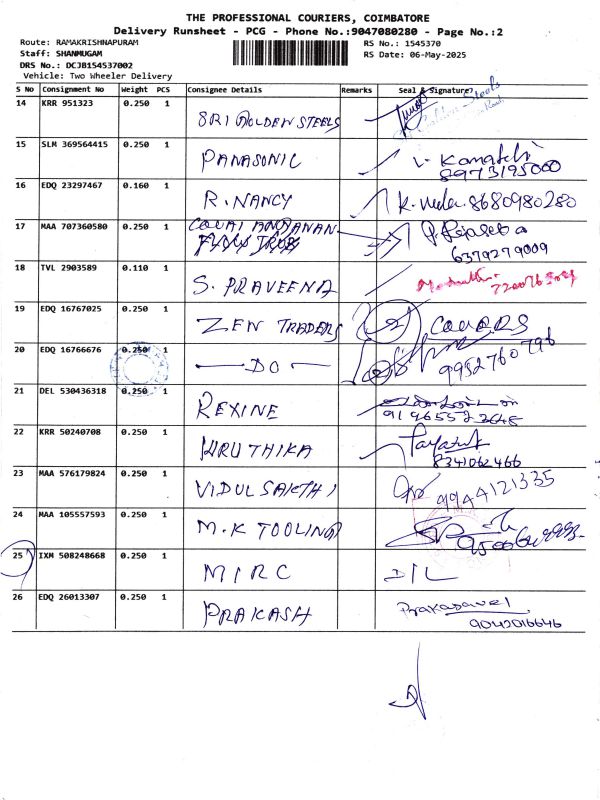 THE PROFESSIONAL COURIERS, COIMBATORE
Delivery Runsheet - PCG - Phone No.:9047080280 - Page No.:2
Route: RAMAKRISHNAPURAM
RS No.: 1545370
Staff: SHANMUGAM
RS Date: 06-May-2025
DRS No.: DCJB154537002
Vehicle: Two Wheeler Delivery
S No Consignment No Weight PCS Consignee Details Remarks Seal & Signature
14 KRR 951323 0.250 1 SRI GOLDEN STEELS
15 SLM 369564415 0.250 1 PANASONIC
8973195000
16 EDQ 23297467 0.160 1 R. NANCY 8680980280
17 MAA 707360580 0.250 1
6379279009
18 TVL 2903589 0.110 1 S. PRAVEENA
19 EDQ 16767025 0.250 1 ZEN TRADERS
20 EDQ 16766676 0.250 1 DO
9952760796
21 DEL 530436318 0.250 1 REXINE
22 KRR 50240708 0.250 1 HRUTHIKA
8341062466
23 MAA 576179824 0.250 1 VIDUL SAKTHI 9944121335
24 MAA 105557593 0.250 1 M.K TOOLING
25 IXM 508248668 0.250 1 MIRC D/L
26 EDQ 26013307 0.250 1 PRAKASH Prakasavel
9042016646